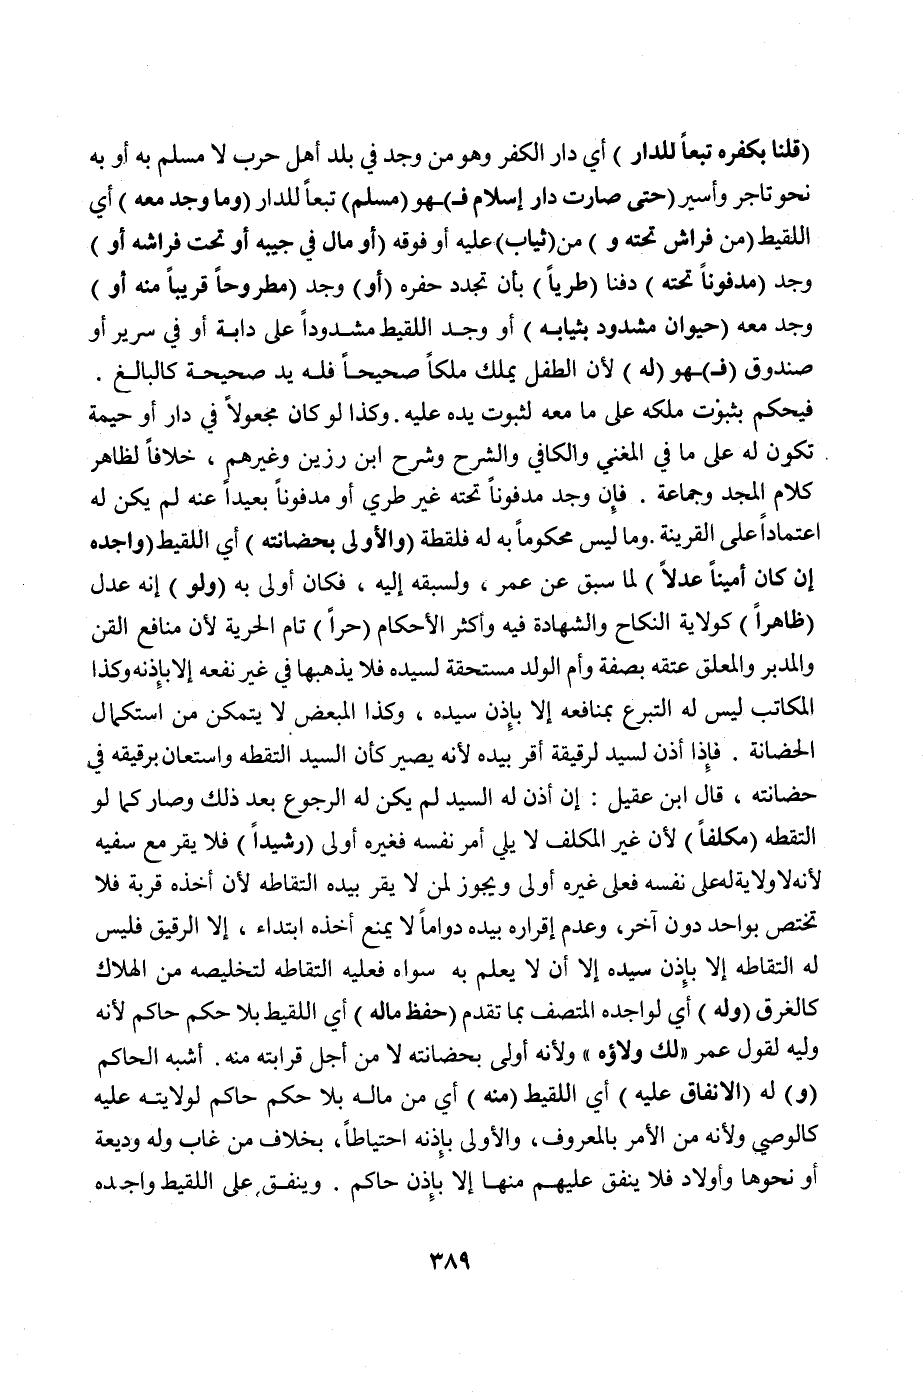 (قلنا بكفره تبعاً للدار ) أي دار الكفر وهو من وجد في بلد أهل حرب لا مسلم به أو به
نحو تاجر وأسير (حتى صارت دار إسلام فـ)ـهو (مسلم) تبعاً للدار (وما وجد معه ) أي
اللقيط (من فراش تحته و ) من(ثياب)عليه أو فوقه (أو مال في جيبه أو تحت فراشه أو )
وجد (مدفوناً تحته ) دفنا (طرياً ) بأن تجدد حفره (أو) وجد (مطروحاً قريباً منه أو )
وجد معه (حيوان مشدود بثيابه ) أو وجد اللقيط مشدوداً على دابة أو في سرير أو
صندوق (فـ)ـهو (له ) لأن الطفل يملك ملكاً صحيحاً فله يد صحيحة كالبالغ .
فيحكم بثبوت ملكه على ما معه لثبوت يده عليه. وكذا لو كان مجعولاً في دار أو خيمة
تكون له على ما في المغني والكافي والشرح وشرح ابن رزين وغيرهم ، خلافاً لظاهر
كلام المجد وجماعة . فإن وجد مدفوناً تحته غير طري أو مدفوناً بعيداً عنه لم يكن له
اعتماداً على القرينة .وما ليس محكوماً به له فلقطة (والأولى بحضانته ) أي اللقيط (واجده
إن كان أميناً عدلاً ) لما سبق عن عمر ، ولسبقه إليه ، فكان أولى به (ولو ) إنه عدل
(ظاهراً ) كولاية النكاح والشهادة فيه وأكثر الأحكام (حراً ) تام الحرية لأن منافع القن
والمدبر والمعلق عتقه بصفة وأم الولد مستحقة لسيده فلا يذهبها في غير نفعه إلا بإذنه وكذا
المكاتب ليس له التبرع بمنافعه إلا بإذن سيده ، وكذا المبعض لا يتمكن من استكمال
الحضانة . فإذا أذن لسيد لرقيقة أقر بيده لأنه يصير كأن السيد التقطه واستعان برقيقه في
حضانته ، قال ابن عقيل : إن أذن له السيد لم يكن له الرجوع بعد ذلك وصار كما لو
التقطه (مكلفاً ) لأن غير المكلف لا يلي أمر نفسه فغيره أولى (رشيداً ) فلا يقر مع سفيه
لأنه لا ولاية له على نفسه فعلى غيره أولى ويجوز لمن لا يقر بيده التقاطه لأن أخذه قربة فلا
تختص بواحد دون آخر، وعدم إقراره بيده دواماً لا يمنع أخذه ابتداء ، إلا الرقيق فليس
له التقاطه إلا بإذن سيده إلا أن لا يعلم به سواه فعليه التقاطه لتخليصه من الهلاك
كالغرق (وله ) أي لواجده المتصف بما تقدم (حفظ ماله ) أي اللقيط بلا حكم حاكم لأنه
وليه لقول عمر «لك ولاؤه » ولأنه أولى بحضانته لا من أجل قرابته منه. أشبه الحاكم
(و) له (الانفاق عليه ) أي اللقيط (منه ) أي من ماله بلا حكم حاكم لولايته عليه
كالوصي ولأنه من الأمر بالمعروف، والأولى بإذنه احتياطاً، بخلاف من غاب وله وديعة
أو نحوها وأولاد فلا ينفق عليهم منها إلا بإذن حاكم . وينفق على اللقيط واجده
٣٨٩